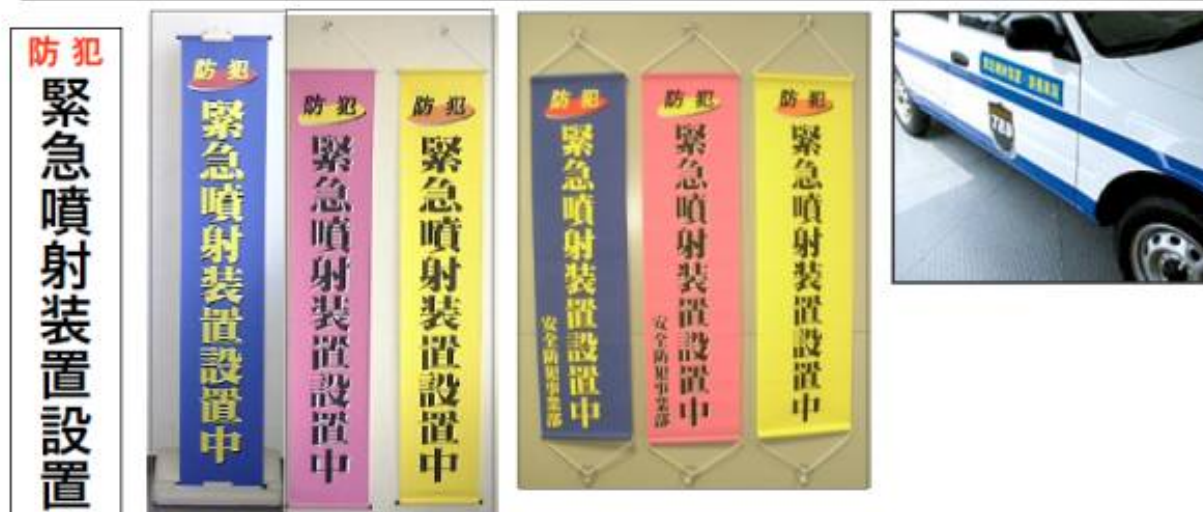 防犯
緊急噴射装置設置
防犯
緊急噴射装置設置中
防犯
緊急噴射装置設置中
防犯
緊急噴射装置設置中
防犯
緊急噴射装置設置中
安全防犯事業部
防犯
緊急噴射装置設置中
安全防犯事業部
防犯
緊急噴射装置設置中